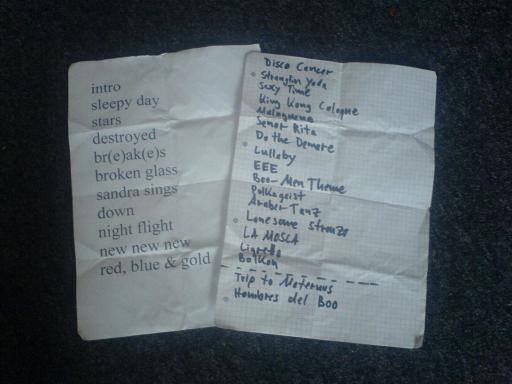 intro
sleepy day
stars
destroyed
br(e)ak(e)s
broken glass
sandra sings
down
night flight
new new new
red, blue & gold
Disco Cancer
Stranglin Yoda
Sexy Time
King Kong Cologne
Malaguena
Señor Rita
Do the Demore
Lullaby
EEE
Boo-Men Theme
Polkageist
Araber Tanz
Lonesome
LA MOSCA
Ligretto
Balkon
Trip to Maternus
Hombres del Boo